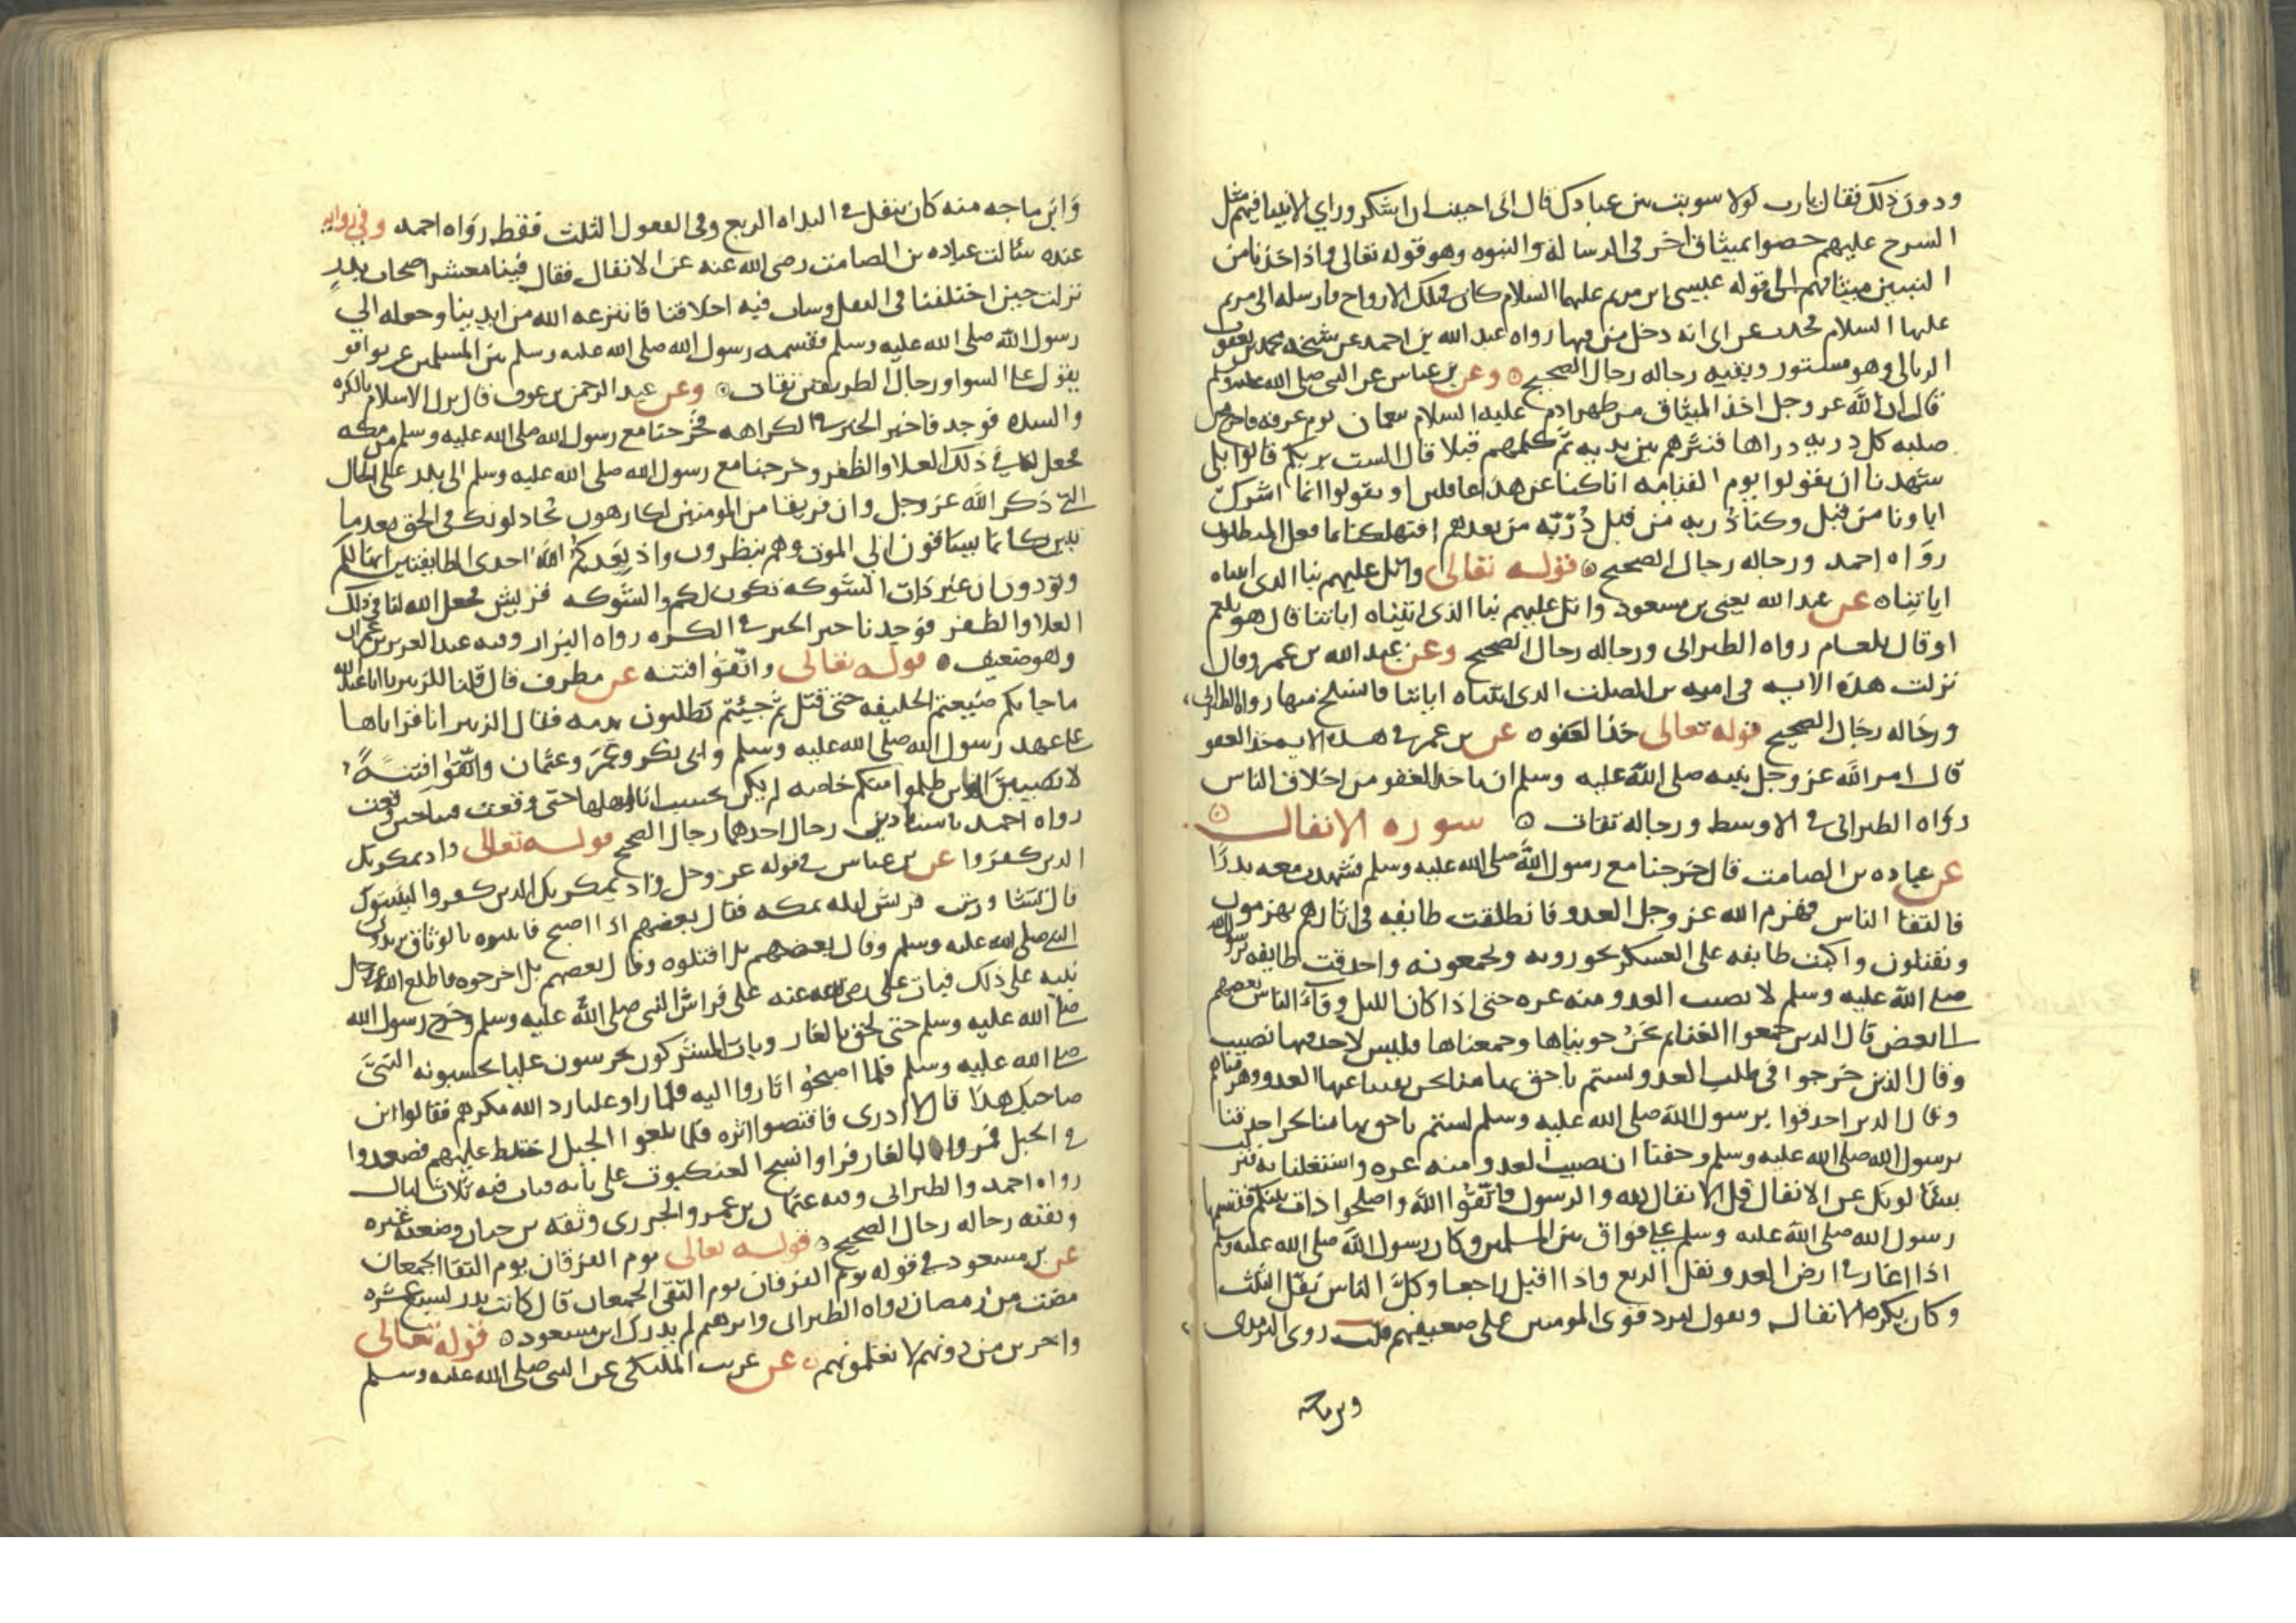 ودون ذلك فقال يارب لولا سويت بين عبادك قال اني احببت ان اشكر وراي الانبيا فيهم مثل
السرح عليهم خصوا بميثاق اخر في الرسالة والنبوه وهو قوله تعالى واذ اخذنا من
النبيين ميثاقهم الى قوله عيسى ابن مريم عليهما السلام كان في تلك الارواح فارسله الى مريم
عليها السلام فحدث عن ابي انه دخل من فيها رواه عبد الله بن احمد عن شيخه محمد بن يعقوب
الربالي وهو مستور وبقيه رجاله رجال الصحيح وعن بن عباس عن النبي صلى الله عليه وسلم
قال ان الله عز وجل اخذ الميثاق من ظهر ادم عليه السلام بنعمان يوم عرفه فاخرج من
صلبه كل ذريه دراها فنثرهم بين يديه ثم كلمهم قبلا قال الست بربكم قالوا بلى
شهدنا ان يقولوا يوم القيامه انا كنا عن هذا غافلين او يقولوا انما اشرك
اباونا من قبل وكنا ذريه من قبل ذريه من بعدهم افتهلكنا بما فعل المبطلون
رواه احمد ورجاله رجال الصحيح قوله تعالى واتل عليهم نبا الذي اتيناه
اياتنا عن عبد الله يعني بن مسعود واتل عليهم نبا الذي اتيناه اياتنا قال هو بلعم
او قال بلعام رواه الطبراني ورجاله رجال الصحيح وعن عبد الله بن عمرو قال
نزلت هذه الايه في اميه بن ابي الصلت الذي اتيناه اياتنا فانسلخ منها رواه الطبراني
ورجاله رجال الصحيح قوله تعالى خذ العفو عن بن عمر في هذه الايه خذ العفو
قال امر الله عز وجل نبيه صلى الله عليه وسلم ان ياخذ العفو من اخلاق الناس
رواه الطبراني في الاوسط ورجاله ثقات سورة الانفال
عن عباده بن الصامت قال خرجنا مع رسول الله صلى الله عليه وسلم فشهدت معه بدرا
فالتقا الناس فهزم الله عز وجل العدو فانطلقت طايفه في اثارهم يهزمون
ويقتلون واكبت طايفه على العسكر يحوزونه ويجمعونه واحدقت طايفه برسول الله
صلى الله عليه وسلم لا يصيب العدو منه غره حتى اذا كان الليل وفاء الناس بعضهم
الى بعض قال الذين جمعوا الغنايم نحن حويناها وجمعناها فليس لاحد فيها نصيب
وقال الذين خرجوا في طلب العدو لستم باحق بها منا نحن نفينا عنها العدو وهزمناهم
وقال الذين احدقوا برسول الله صلى الله عليه وسلم لستم باحق بها منا نحن احدقنا
برسول الله صلى الله عليه وسلم وخفنا ان يصيب العدو منه غره واشتغلنا به فنزلت
يسئلونك عن الانفال قل الانفال لله والرسول فاتقوا الله واصلحوا ذات بينكم فقسمها
رسول الله صلى الله عليه وسلم على فواق بين المسلمين وكان رسول الله صلى الله عليه وسلم
اذا اغار في ارض العدو نفل الربع واذا اقبل راجعا وكل الناس نفل الثلث
وكان يكره الانفال ويقول ليرد قوى المومنين على ضعيفهم قلت روى الترمذي
وبن ماجه
وابن ماجه منه كان ينفل في البداه الربع وفي القفول الثلث فقط رواه احمد وفي روايه
عنده سئالت عباده بن الصامت رضي الله عنه عن الانفال فقال فينا معشر اصحاب بدر
نزلت حين اختلفنا في النفل وسات فيه اخلاقنا فانتزعه الله من ايدينا وجعله الي
رسول الله صلى الله عليه وسلم فقسمه رسول الله صلى الله عليه وسلم بين المسلمين عن بواقو
يقول على السوا ورجال الطريقين ثقات وعن عبد الرحمن بن عوف قال نزل الاسلام بالكره
والشده فوجد فاخير الخير في الكراهه فخرجنا مع رسول الله صلى الله عليه وسلم من مكه
فجعل لنا في ذلك العلا والظفر وخرجنا مع رسول الله صلى الله عليه وسلم الى بدر على الحال
التي ذكر الله عز وجل وان فريقا من المومنين لكارهون يجادلونك في الحق بعد ما
تبين كانما يساقون الي الموت وهم ينظرون واذ يعدكم الله احدى الطايفتين انها لكم
وتودون ان غير ذات الشوكه تكون لكم والشوكه قريش فجعل الله لنا في ذلك
العلا والظفر فوجدنا خير الخير في الكره رواه البزار وفيه عبد العزيز بن عمران
وهو ضعيف قوله تعالى واتقوا فتنه عن مطرف قال قلنا للزبير يا ابا عبد الله
ما جا بكم ضيعتم الخليفه حتى قتل ثم جيئتم تطلبون بدمه فقال الزبير انا قراناها
على عهد رسول الله صلى الله عليه وسلم وابي بكر وعمر وعثمان واتقوا فتنة
لا تصيبن الذين ظلموا منكم خاصه لم يكن نحسب انا اهلها حتى وقعت منا حيث وقعت
رواه احمد باسنادين رجال احدهما رجال الصحيح قوله تعالى واذ يمكر بك
الذين كفروا عن بن عباس في قوله عز وجل واذ يمكر بك الذين كفروا ليثبتوك
قال تشاورت قريش ليله بمكه فقال بعضهم اذا اصبح فاثبتوه بالوثاق يريدون
النبي صلى الله عليه وسلم وقال بعضهم بل اقتلوه وقال بعضهم بل اخرجوه فاطلع الله عز وجل
نبيه على ذلك فبات علي رضي الله عنه على فراش النبي صلى الله عليه وسلم وخرج رسول الله
صلى الله عليه وسلم حتى لحق بالغار وبات المشركون يحرسون عليا يحسبونه النبي
صلى الله عليه وسلم فلما اصبحوا ثاروا اليه فلما راو عليا رد الله مكرهم فقالوا اين
صاحبك هذا قال لا ادرى فاقتصوا اثره فلما بلغوا الجبل اختلط عليهم فصعدوا
في الجبل فمروا بالغار فراوا نسج العنكبوت على بابه فبات فيه ثلاث ليال
رواه احمد والطبراني وفيه عثمان بن عمرو الجزرى وثقه بن حبان وضعفه غيره
وبقيه رجاله رجال الصحيح قوله تعالى يوم الفرقان يوم التقا الجمعان
عن بن مسعود في قوله يوم الفرقان يوم التقى الجمعان قال كانت بدر لسبع عشره
مضت من رمضان رواه الطبراني وابرهيم لم يدرك ابن مسعود قوله تعالى
واخرين من دونهم لا تعلمونهم عن عريب المليكي عن النبي صلى الله عليه وسلم